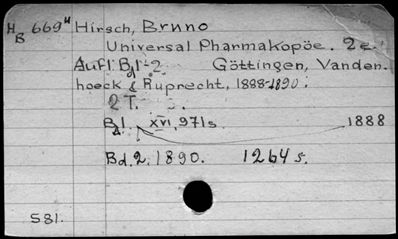 H 669ᴴ Hirsch, Bruno
B
Universal Pharmakopöe. 2e.
Aufl. Bd 1-2. Göttingen, Vanden-
hoeck & Ruprecht, 1888-1890.
2 T.
Bd 1. XVI, 971 s. 1888
Bd. 2. 1890. 1264 s.
581.